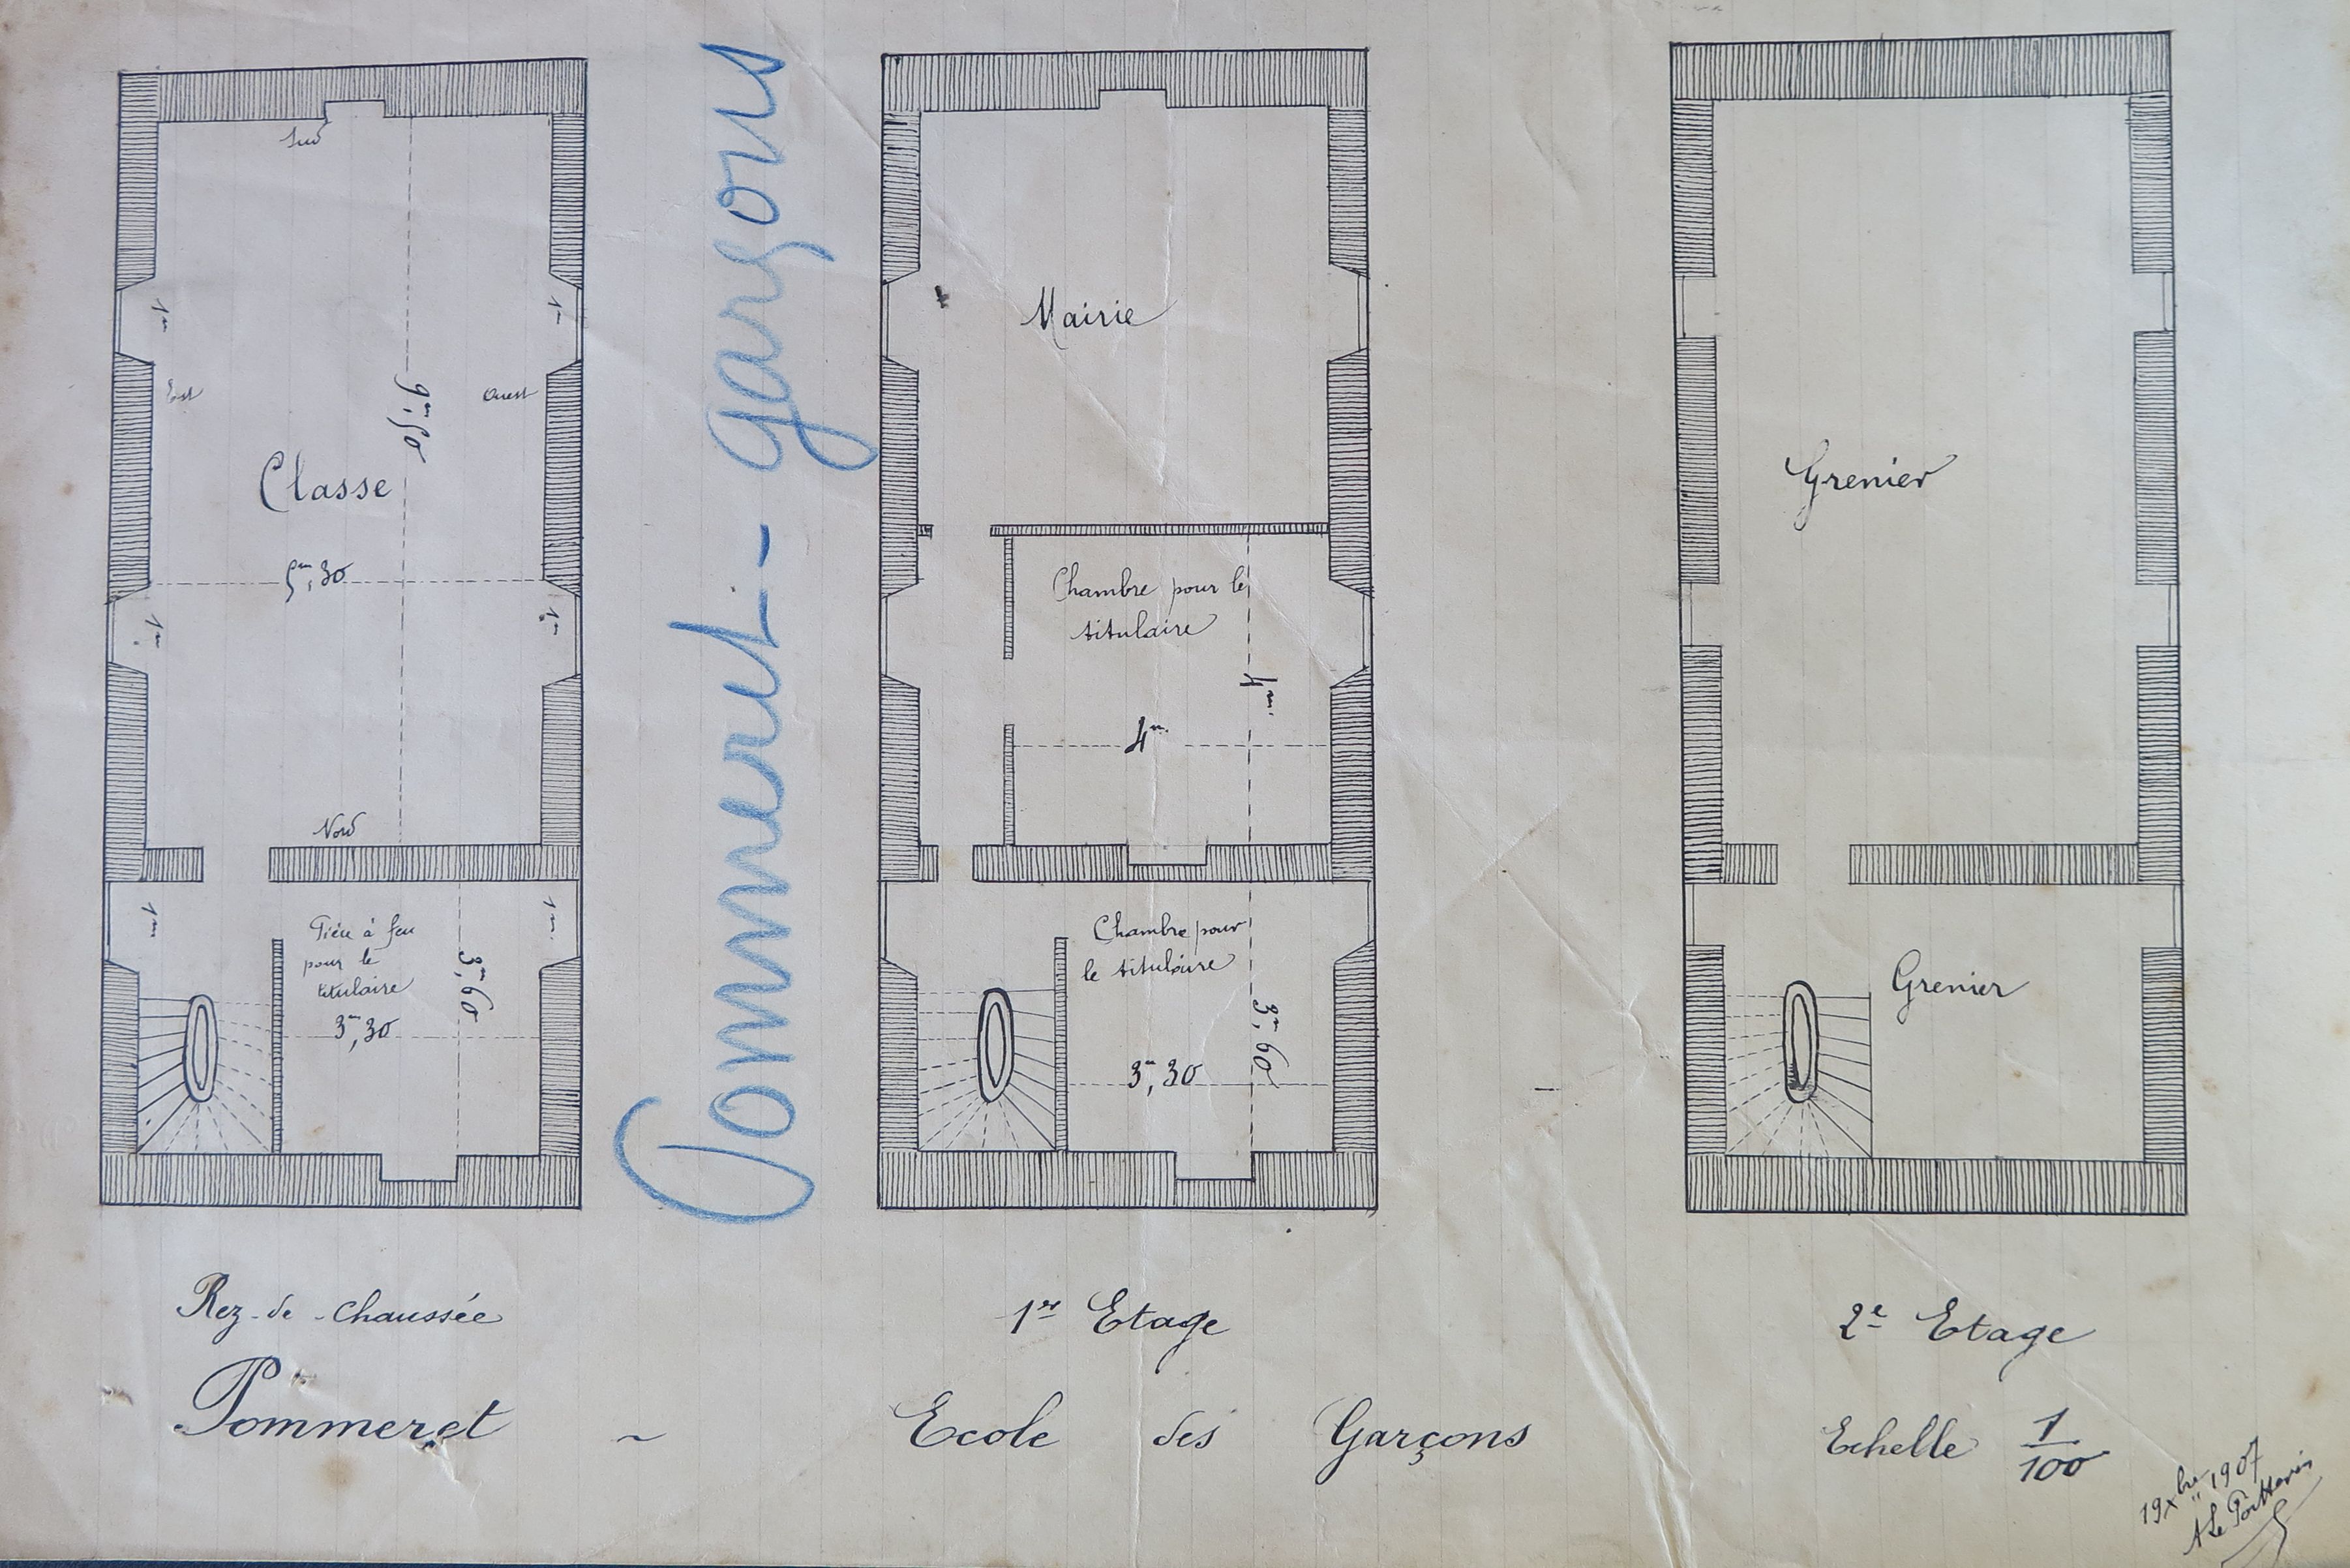 Sud
1m
1m
Est
Ouest
9m,50
Classe
5m,30
1m
1m
Nord
1m
1m
Pièce à feu
pour le
titulaire
3m,60
3m,30
Rez-de-Chaussée
Pommeret - garçons
Mairie
Chambre pour le
titulaire
4m
4m
Chambre pour
le titulaire
3m,60
3m,30
1er Etage
Grenier
Grenier
2e Etage
Pommeret ~ Ecole des Garçons
Echelle 1/100
19 Xbre 1907
A Le Poittevin